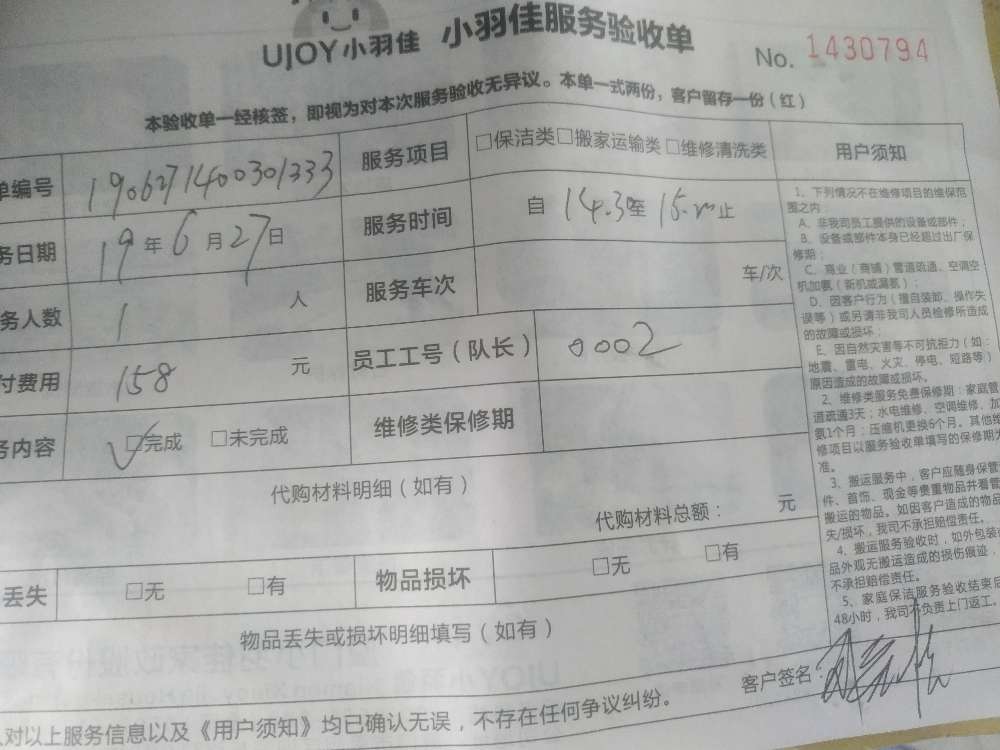 UJOY小羽佳 小羽佳服务验收单 No. 1430794
本验收单一经核签，即视为对本次服务验收无异议。本单一式两份，客户留存一份（红）
单编号 1906271400301333 服务项目 □保洁类□搬家运输类□维修清洗类 用户须知
务日期 19年6月27日 服务时间 自 14.3至 15. 止
务人数 1 人 服务车次 车/次
付费用 158 元 员工工号（队长） 0002
务内容 □完成 □未完成 维修类保修期
代购材料明细（如有）
代购材料总额： 元
丢失 □无 □有 物品损坏 □无 □有
物品丢失或损坏明细填写（如有）
客户签名：
人对以上服务信息以及《用户须知》均已确认无误，不存在任何争议纠纷。
1、下列情况不在维修项目的维保范
围之内：
A、非我司员工提供的设备或部件；
B、设备或部件本身已经超过出厂保
修期；
C、商业（商铺）管道疏通、空调空
机加氨（新机或漏氨）；
D、因客户行为（擅自装卸、操作失
误等）或另请非我司人员检修所造成
的故障或损坏；
E、因自然灾害等不可抗拒力（如：
地震、雷电、火灾、停电、短路等）
原因造成的故障或损坏。
2、维修类服务免费保修期：家庭管
道疏通3天；水电维修、空调维修、加
氨1个月；压缩机更换6个月。其他维
修项目以服务验收单填写的保修期为
准。
3、搬运服务中，客户应随身保管
件、首饰、现金等贵重物品并看管
搬运的物品。如因客户造成的物品
失/损坏，我司不承担赔偿责任。
4、搬运服务验收时，如外包装
品外观无搬运造成的损伤痕迹，
不承担赔偿责任。
5、家庭保洁服务验收结束后
48小时，我司不负责上门返工。